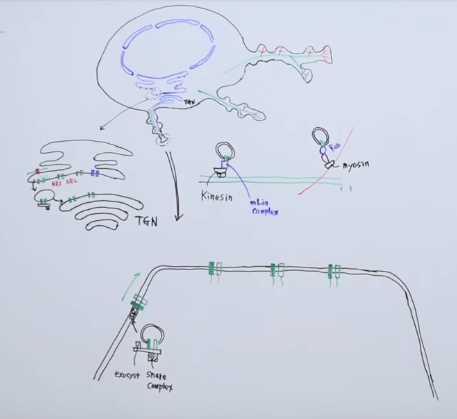 TGN
NR1 NR2
TGN
Kinesin
mLin
complex
Rab
myosin
exocyst
Snare
complex